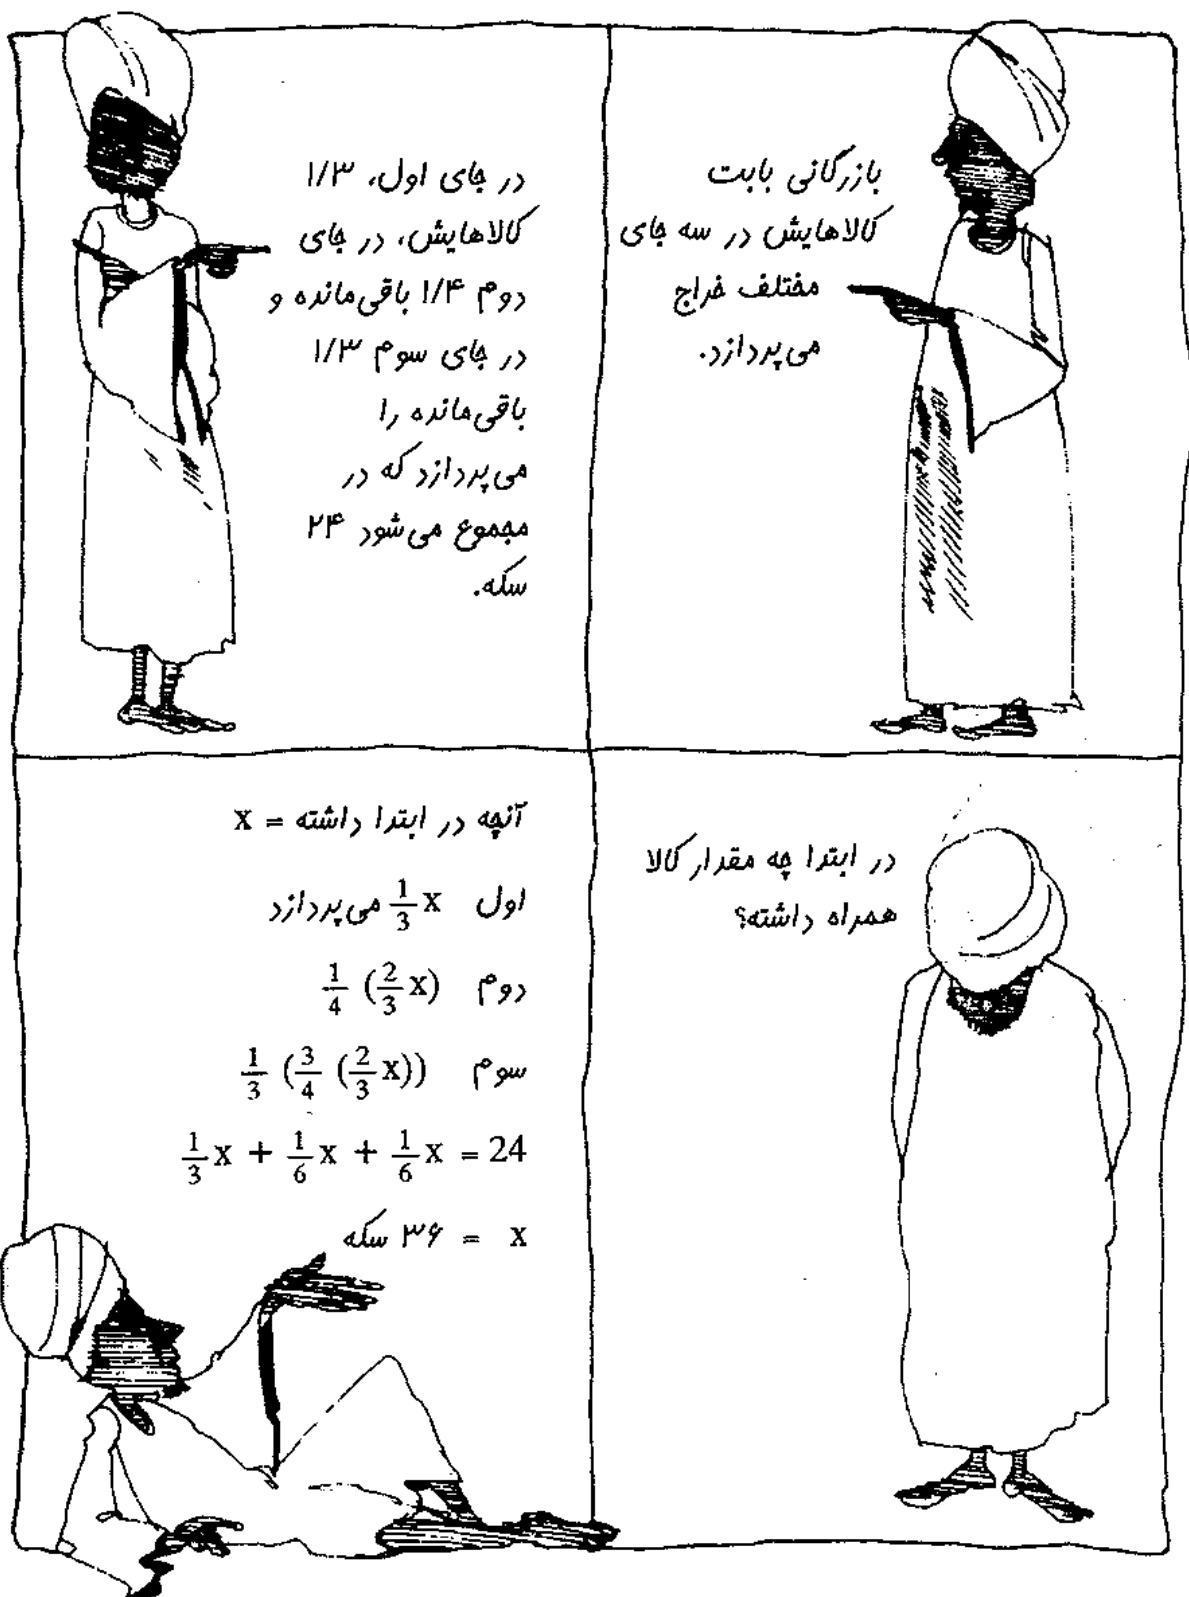 بازرگانی بابت
کالاهایش در سه جای
مختلف خراج
می‌پردازد.
در جای اول، ۱/۳
کالاهایش، در جای
دوم ۱/۴ باقی‌مانده و
در جای سوم ۱/۳
باقی‌مانده را
می‌پردازد که در
مجموع می‌شود ۲۴
سکه.
در ابتدا چه مقدار کالا
همراه داشته؟
آنچه در ابتدا داشته = x
اول $\frac{1}{3}$x می‌پردازد
دوم $\frac{1}{4}$ ($\frac{2}{3}$x)
سوم $\frac{1}{3}$ ($\frac{3}{4}$ ($\frac{2}{3}$x))
$\frac{1}{3}$x + $\frac{1}{6}$x + $\frac{1}{6}$x = 24
x = ۳۶ سکه